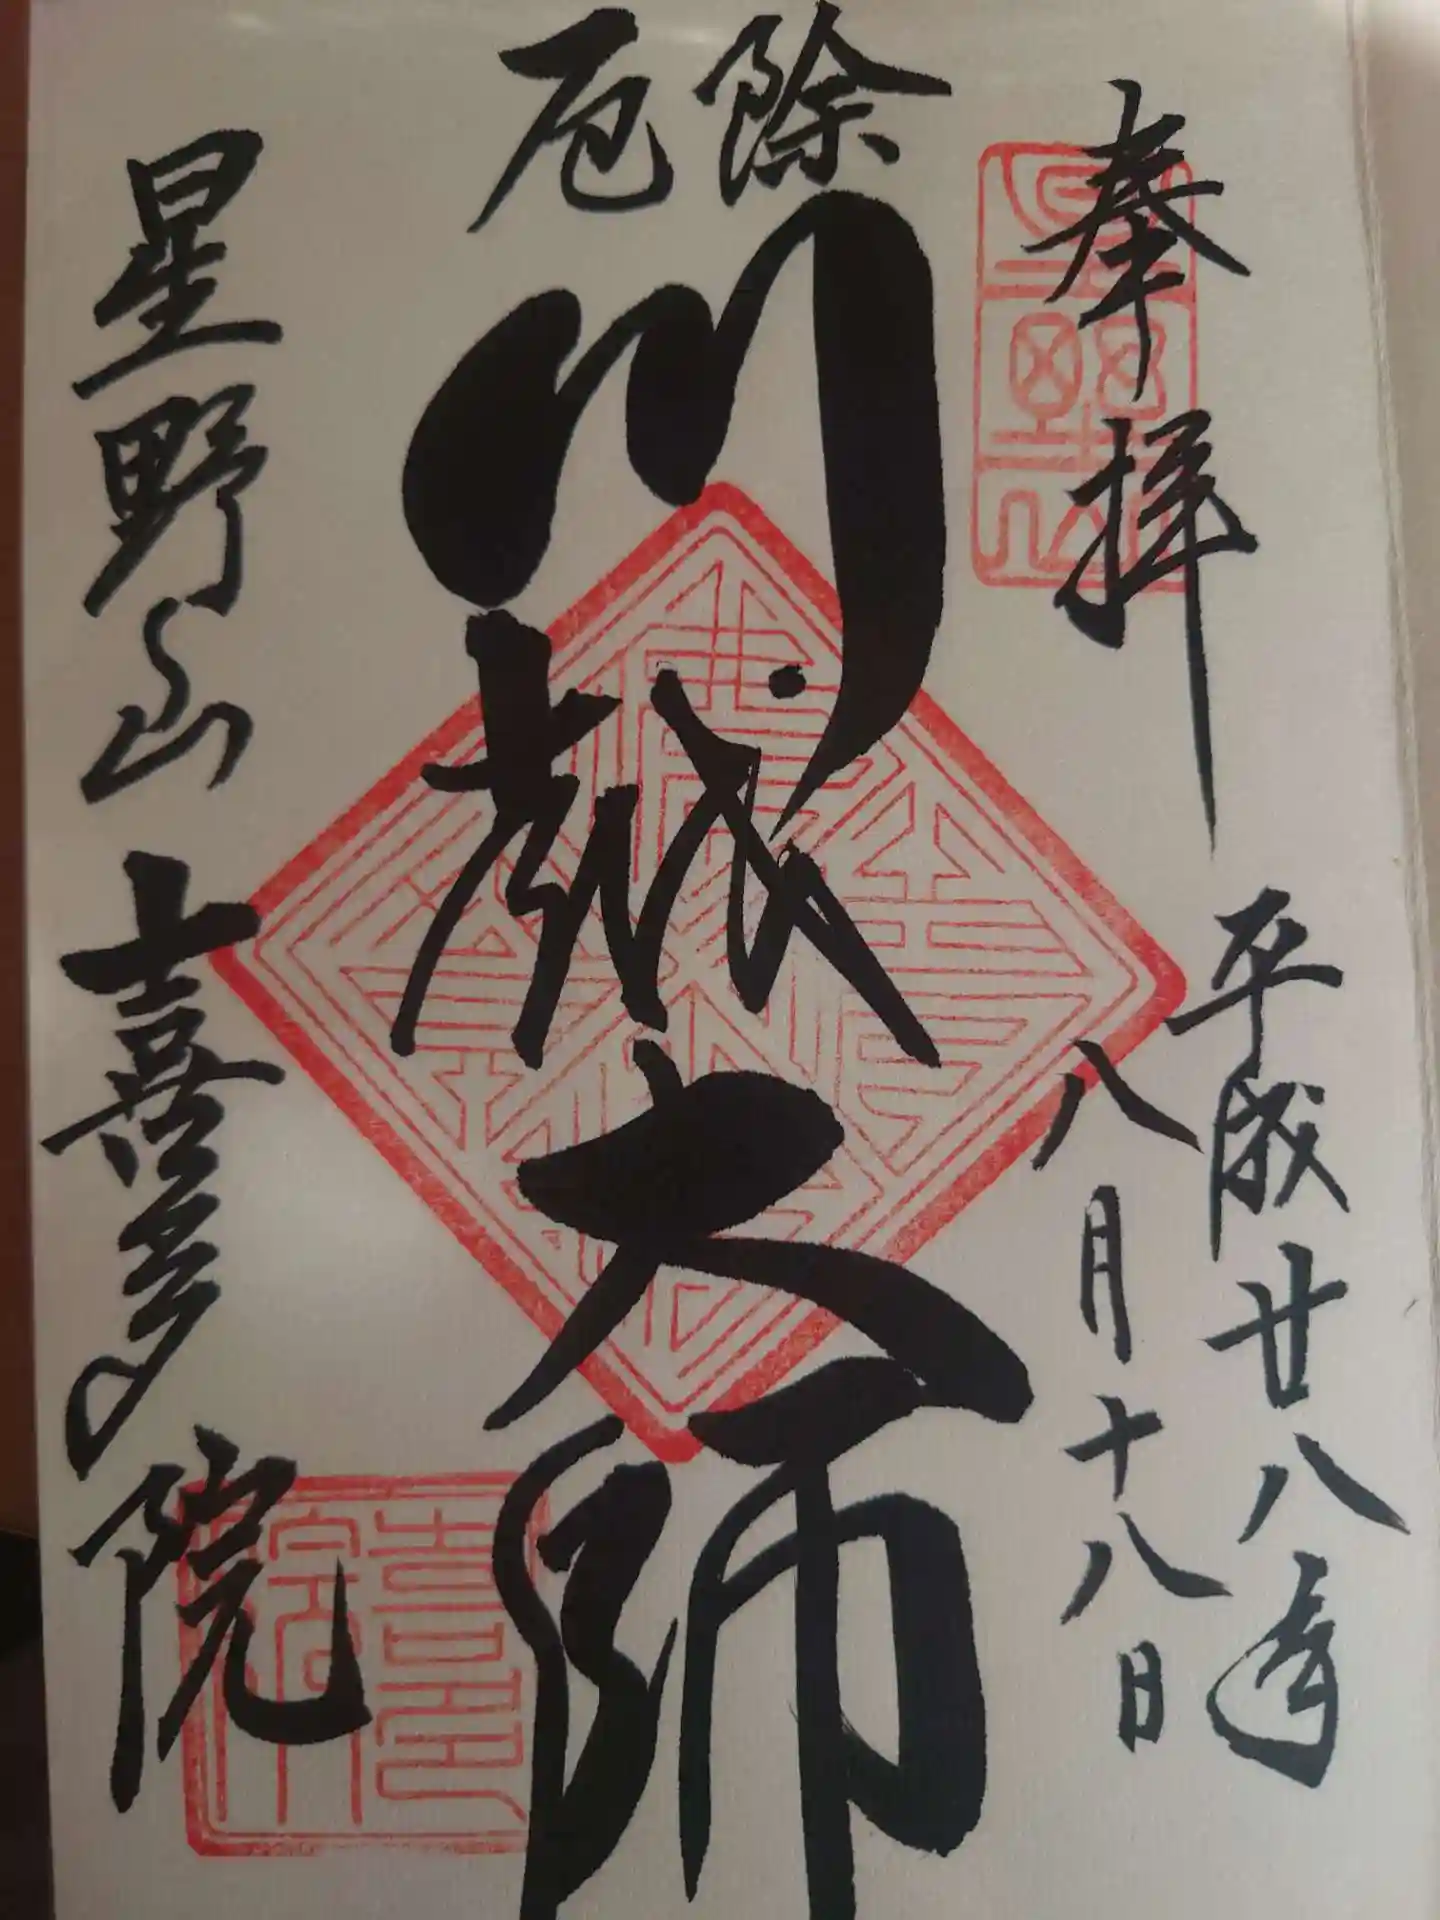 奉拝
平成廿八年
八月十八日
厄除
川越大師
星野山
喜多院
星野山
喜多院